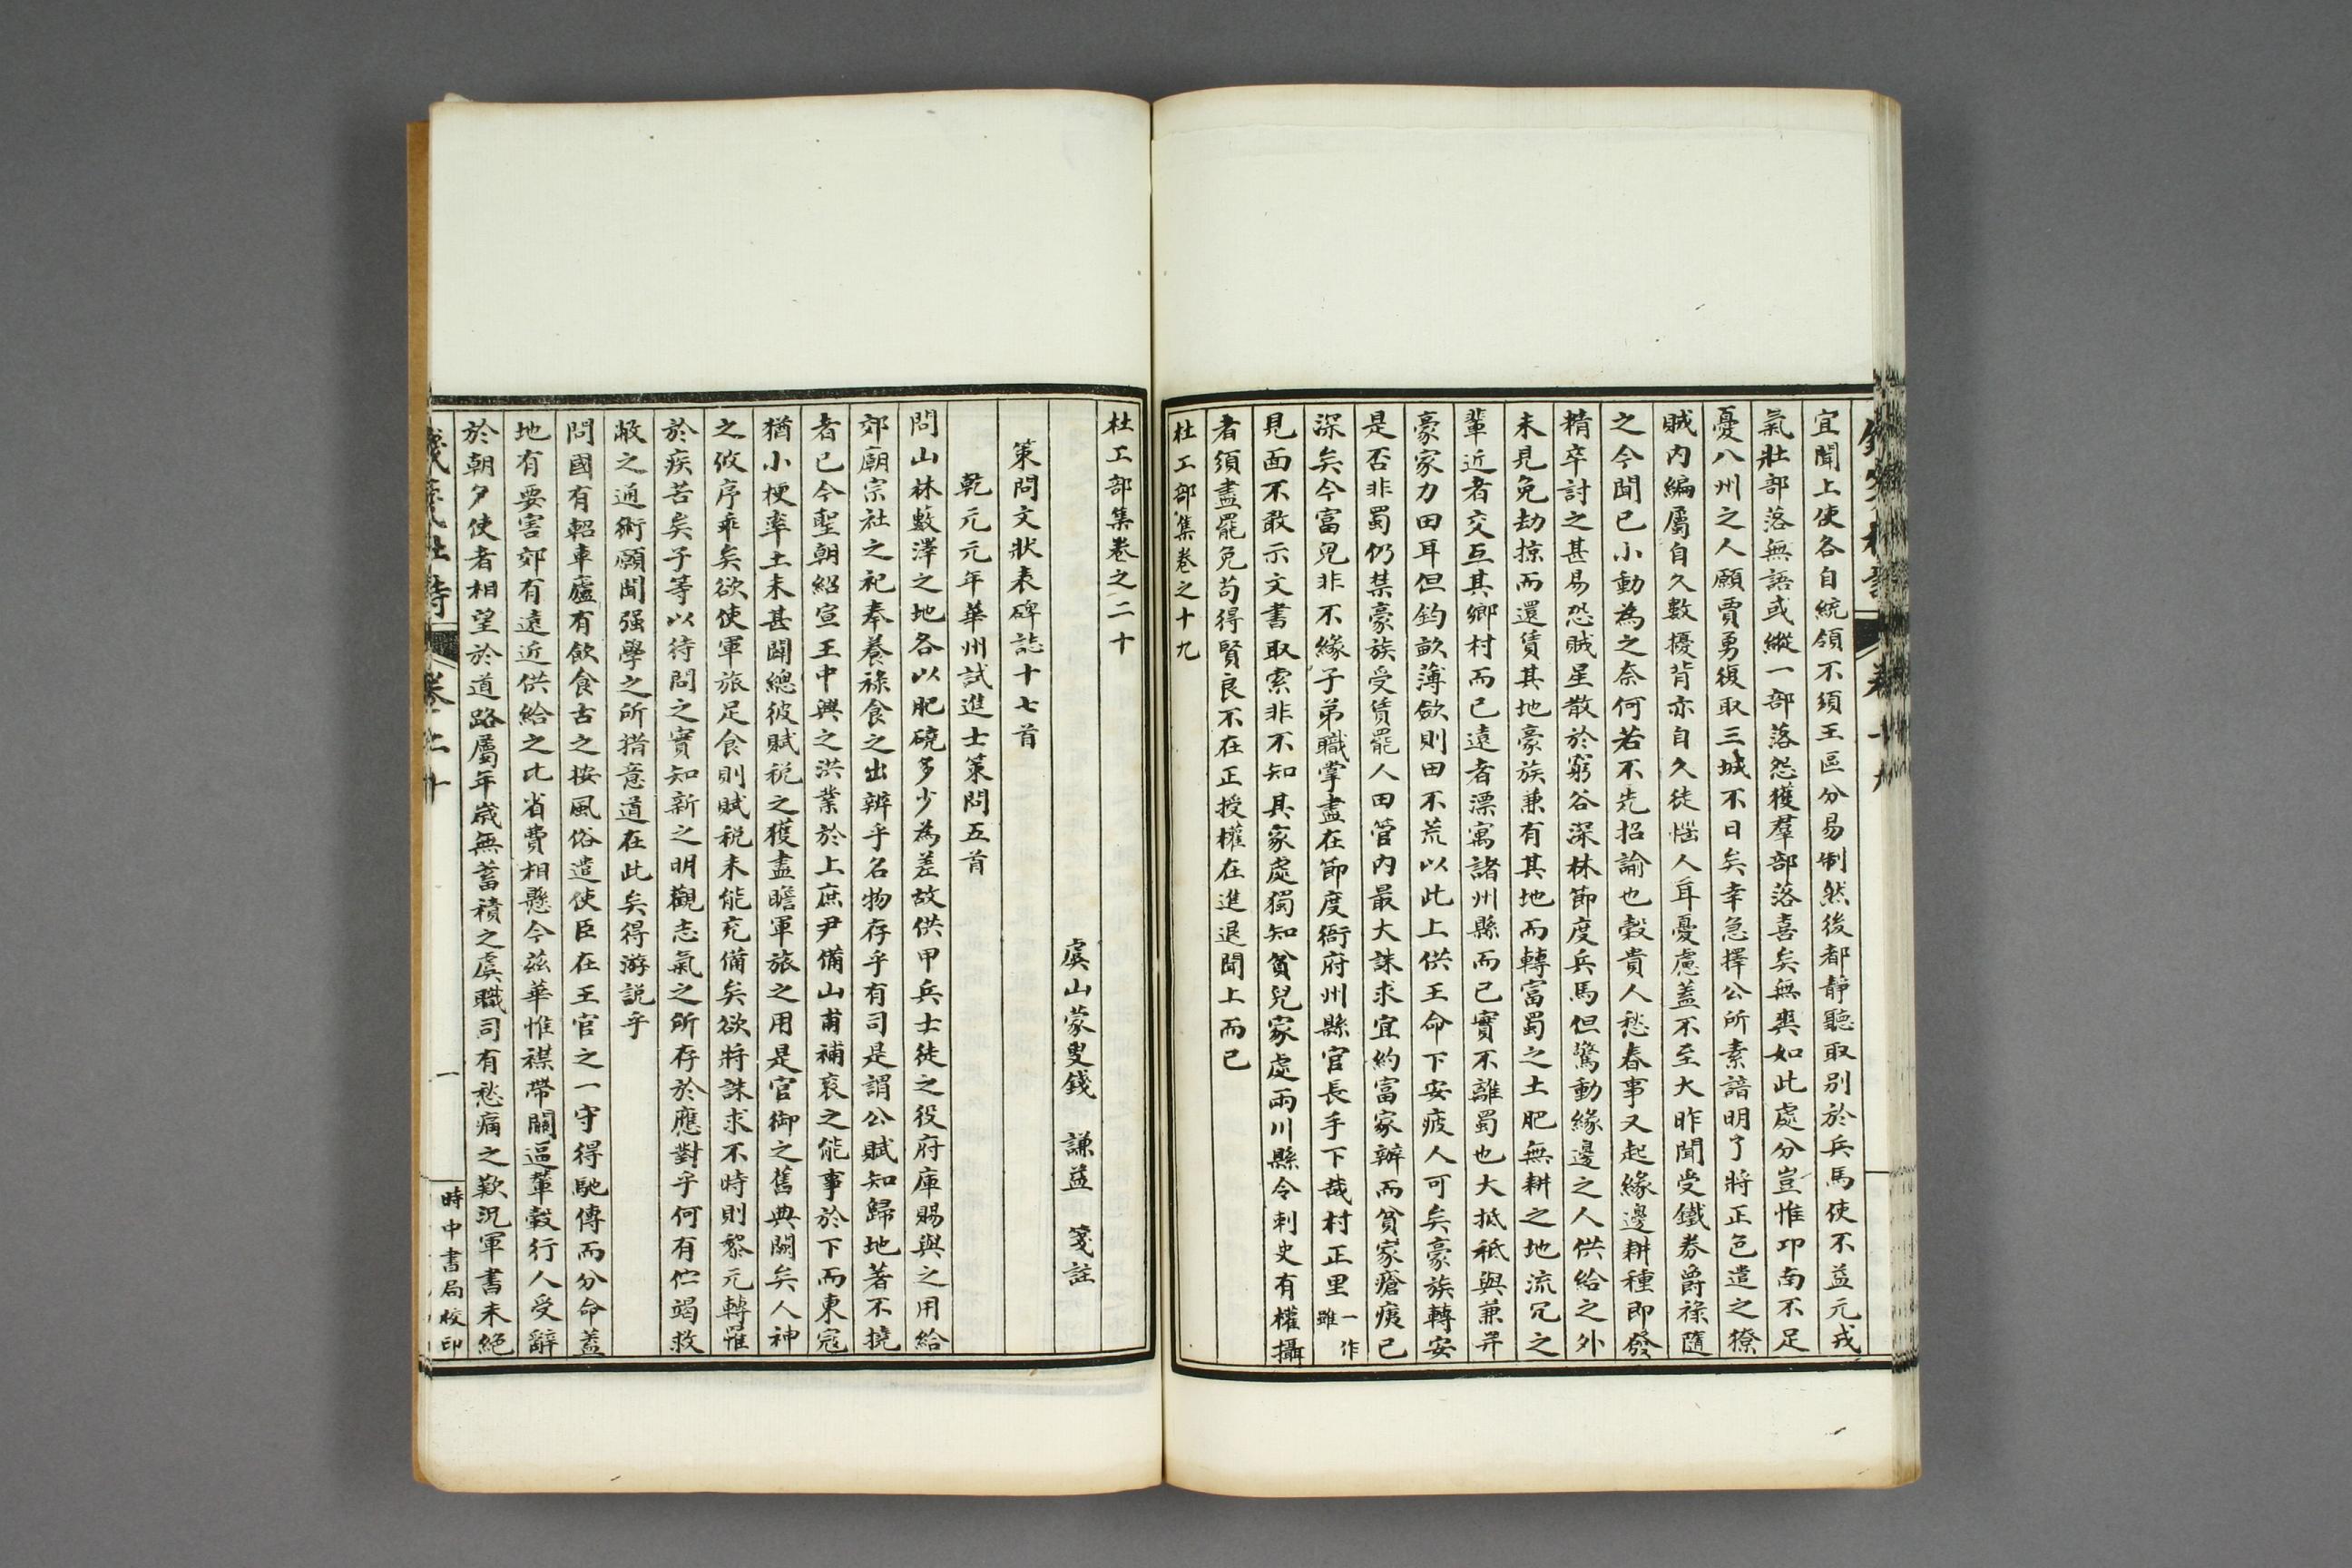 宜聞上使各自統領不須王區分易制然後都靜聽取别於兵馬使不益元戎
氣壯部落無語或縱一部落怨獲羣部落喜矣無爽如此處分豈惟邛南不足
憂八州之人願賈勇復取三城不日矣幸急擇公所素諳明了將正色遣之獠
賊内編屬自久數擾背亦自久徒惱人耳憂慮葢不至大昨聞受鐵券爵祿隨
之今聞已小動為之奈何若不先招諭也穀貴人愁春事又起緣邊耕種即發
精卒討之甚易恐賊星散於窮谷深林節度兵馬但驚動緣邊之人供給之外
未見免劫掠而還賃其地豪族兼有其地而轉富蜀之土肥無耕之地流冗之
輩近者交互其鄉村而已遠者漂寓諸州縣而已實不離蜀也大抵秪與兼并
豪家力田耳但鈞畝薄歛則田不荒以此上供王命下安疲人可矣豪族轉安
是否非蜀仍禁豪族受賃罷人田管内最大誅求宜約富家辦而貧家瘡痍已
深矣今富兒非不緣子弟職掌盡在節度衙府州縣官長手下哉村正里一作雖
見面不敢示文書取索非不知其家處獨知貧兒家處兩川縣令刺史有權攝
者須盡罷免苟得賢良不在正授權在進退聞上而已
杜工部集卷之十九
杜工部集卷之二十
虞山蒙叟錢　謙益　箋註
策問文狀表碑誌十七首
乾元元年華州試進士策問五首
問山林藪澤之地各以肥磽多少為差故供甲兵士徒之役府庫賜與之用給
郊廟宗社之祀奉養祿食之出辨乎名物存乎有司是謂公賦知歸地著不撓
者已今聖朝紹宣王中興之洪業於上庶尹備山甫補衮之能事於下而東寇
猶小梗率土未甚闢總彼賦税之獲盡贍軍旅之用是官御之舊典闕矣人神
之攸序乖矣欲使軍旅足食則賦税未能充備矣欲將誅求不時則黎元轉罹
於疾苦矣子等以待問之實知新之明觀志氣之所存於應對乎何有佇竭救
敝之通術願聞强學之所措意道在此矣得游説乎
問國有軺車廬有飲食古之按風俗遣使臣在王官之一守得馳傳而分命葢
地有要害郊有遠近供給之比省費相懸今茲華惟襟帶關逼輦轂行人受辭
於朝夕使者相望於道路屬年歲無蓄積之虞職司有愁痛之歎況軍書未絕
卷二十
一
時中書局校印